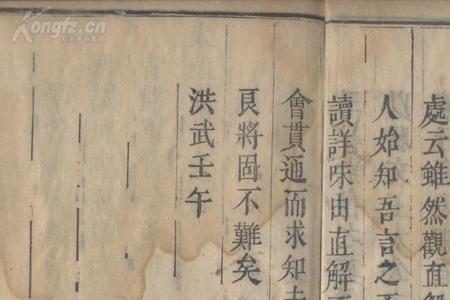 處云雖然觀直解
人始知吾言之不
讀詳味由直解而
會貫通而求知夫
良將固不難矣
洪武壬午
Kongfz.cn